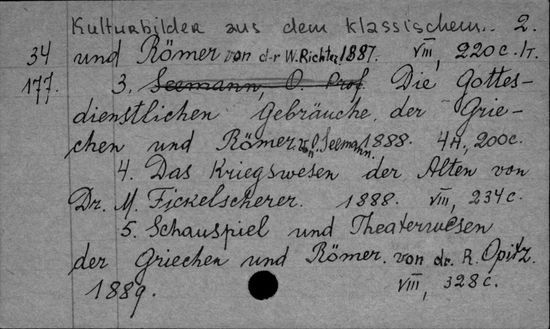 Kulturbilder aus dem klassischem.. 2.
34 und Römer von dr W. Richter 1887. VIII, 220 c. IT.
177. 3. Seemann, O. Prof Die Gottes-
dienstlichen Gebräuche der Grie-
chen und Römer von O. Seemann. 1888. 4 H., 200 c.
4. Das Kriegswesen der Alten von
Dr. M. Fickelscherer. 1888. VIII, 234 c.
5. Schauspiel und Theaterwesen
der Griechen und Römer. von dr. R. Opitz.
1889. VIII, 328 c.